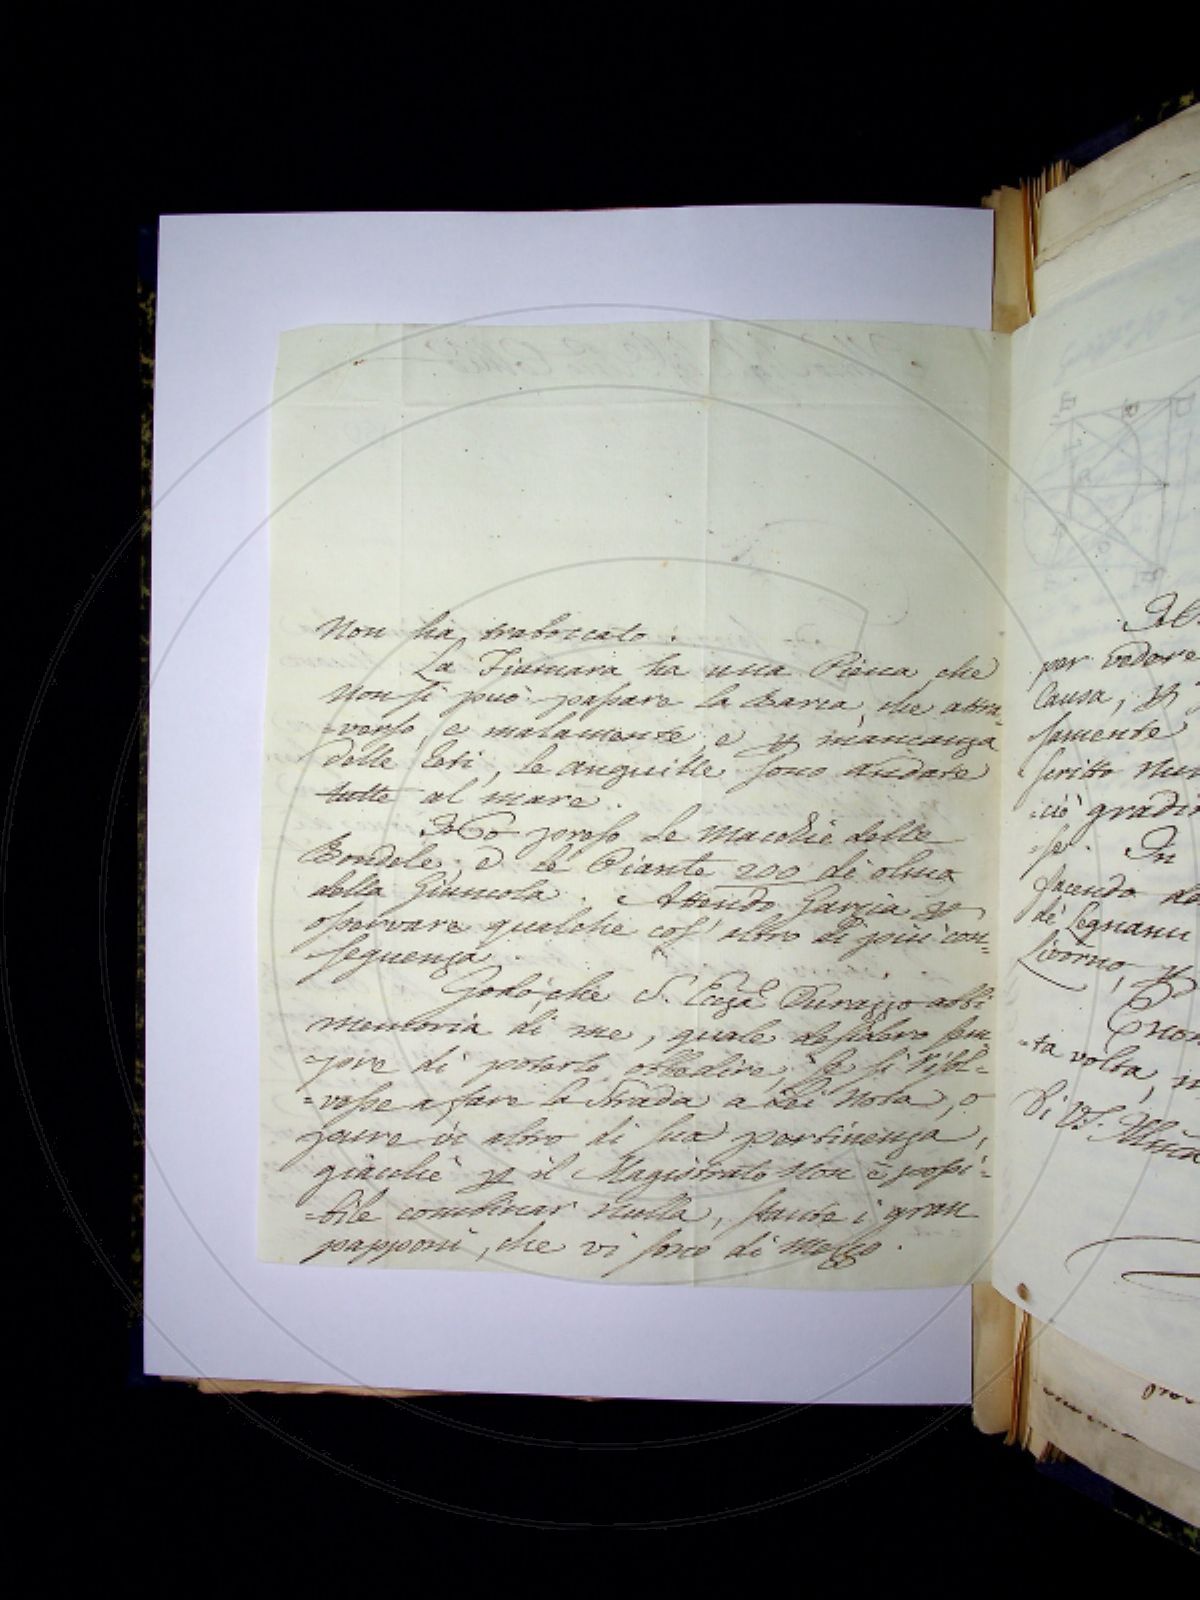 Non ha trabocato.
La Fiumara ha una Piena che
non si può passare la Barca, che attra-
=verso, e malamente, e p mancanza
delle Reti, le anguille sono andate
tutte al mare.
Ho preso le Macchie delle
Bondele. e le Piante 200 di olmo
della Giuncola. Attendo Garzia p
osservare qualche cos' altro di più con=
seguenza.
Godo, che S. Ecza Durazzo abbi
memoria di me, quale desidero sem
=pre di poterlo obbedire, se si risol=
=vesse a fare la Strada a Lei nota, o
pure in altro di sua pertinenza,
giacchè p il Magistrato non è possi=
=bile combinar nulla, stante i gran
papponi, che vi sono di mezzo.
per vedere
Causa, p
scritto
ciò gradir
se. In
facendo
de Legnami
Livorno, p
=ta volta,
Di VS. Illma